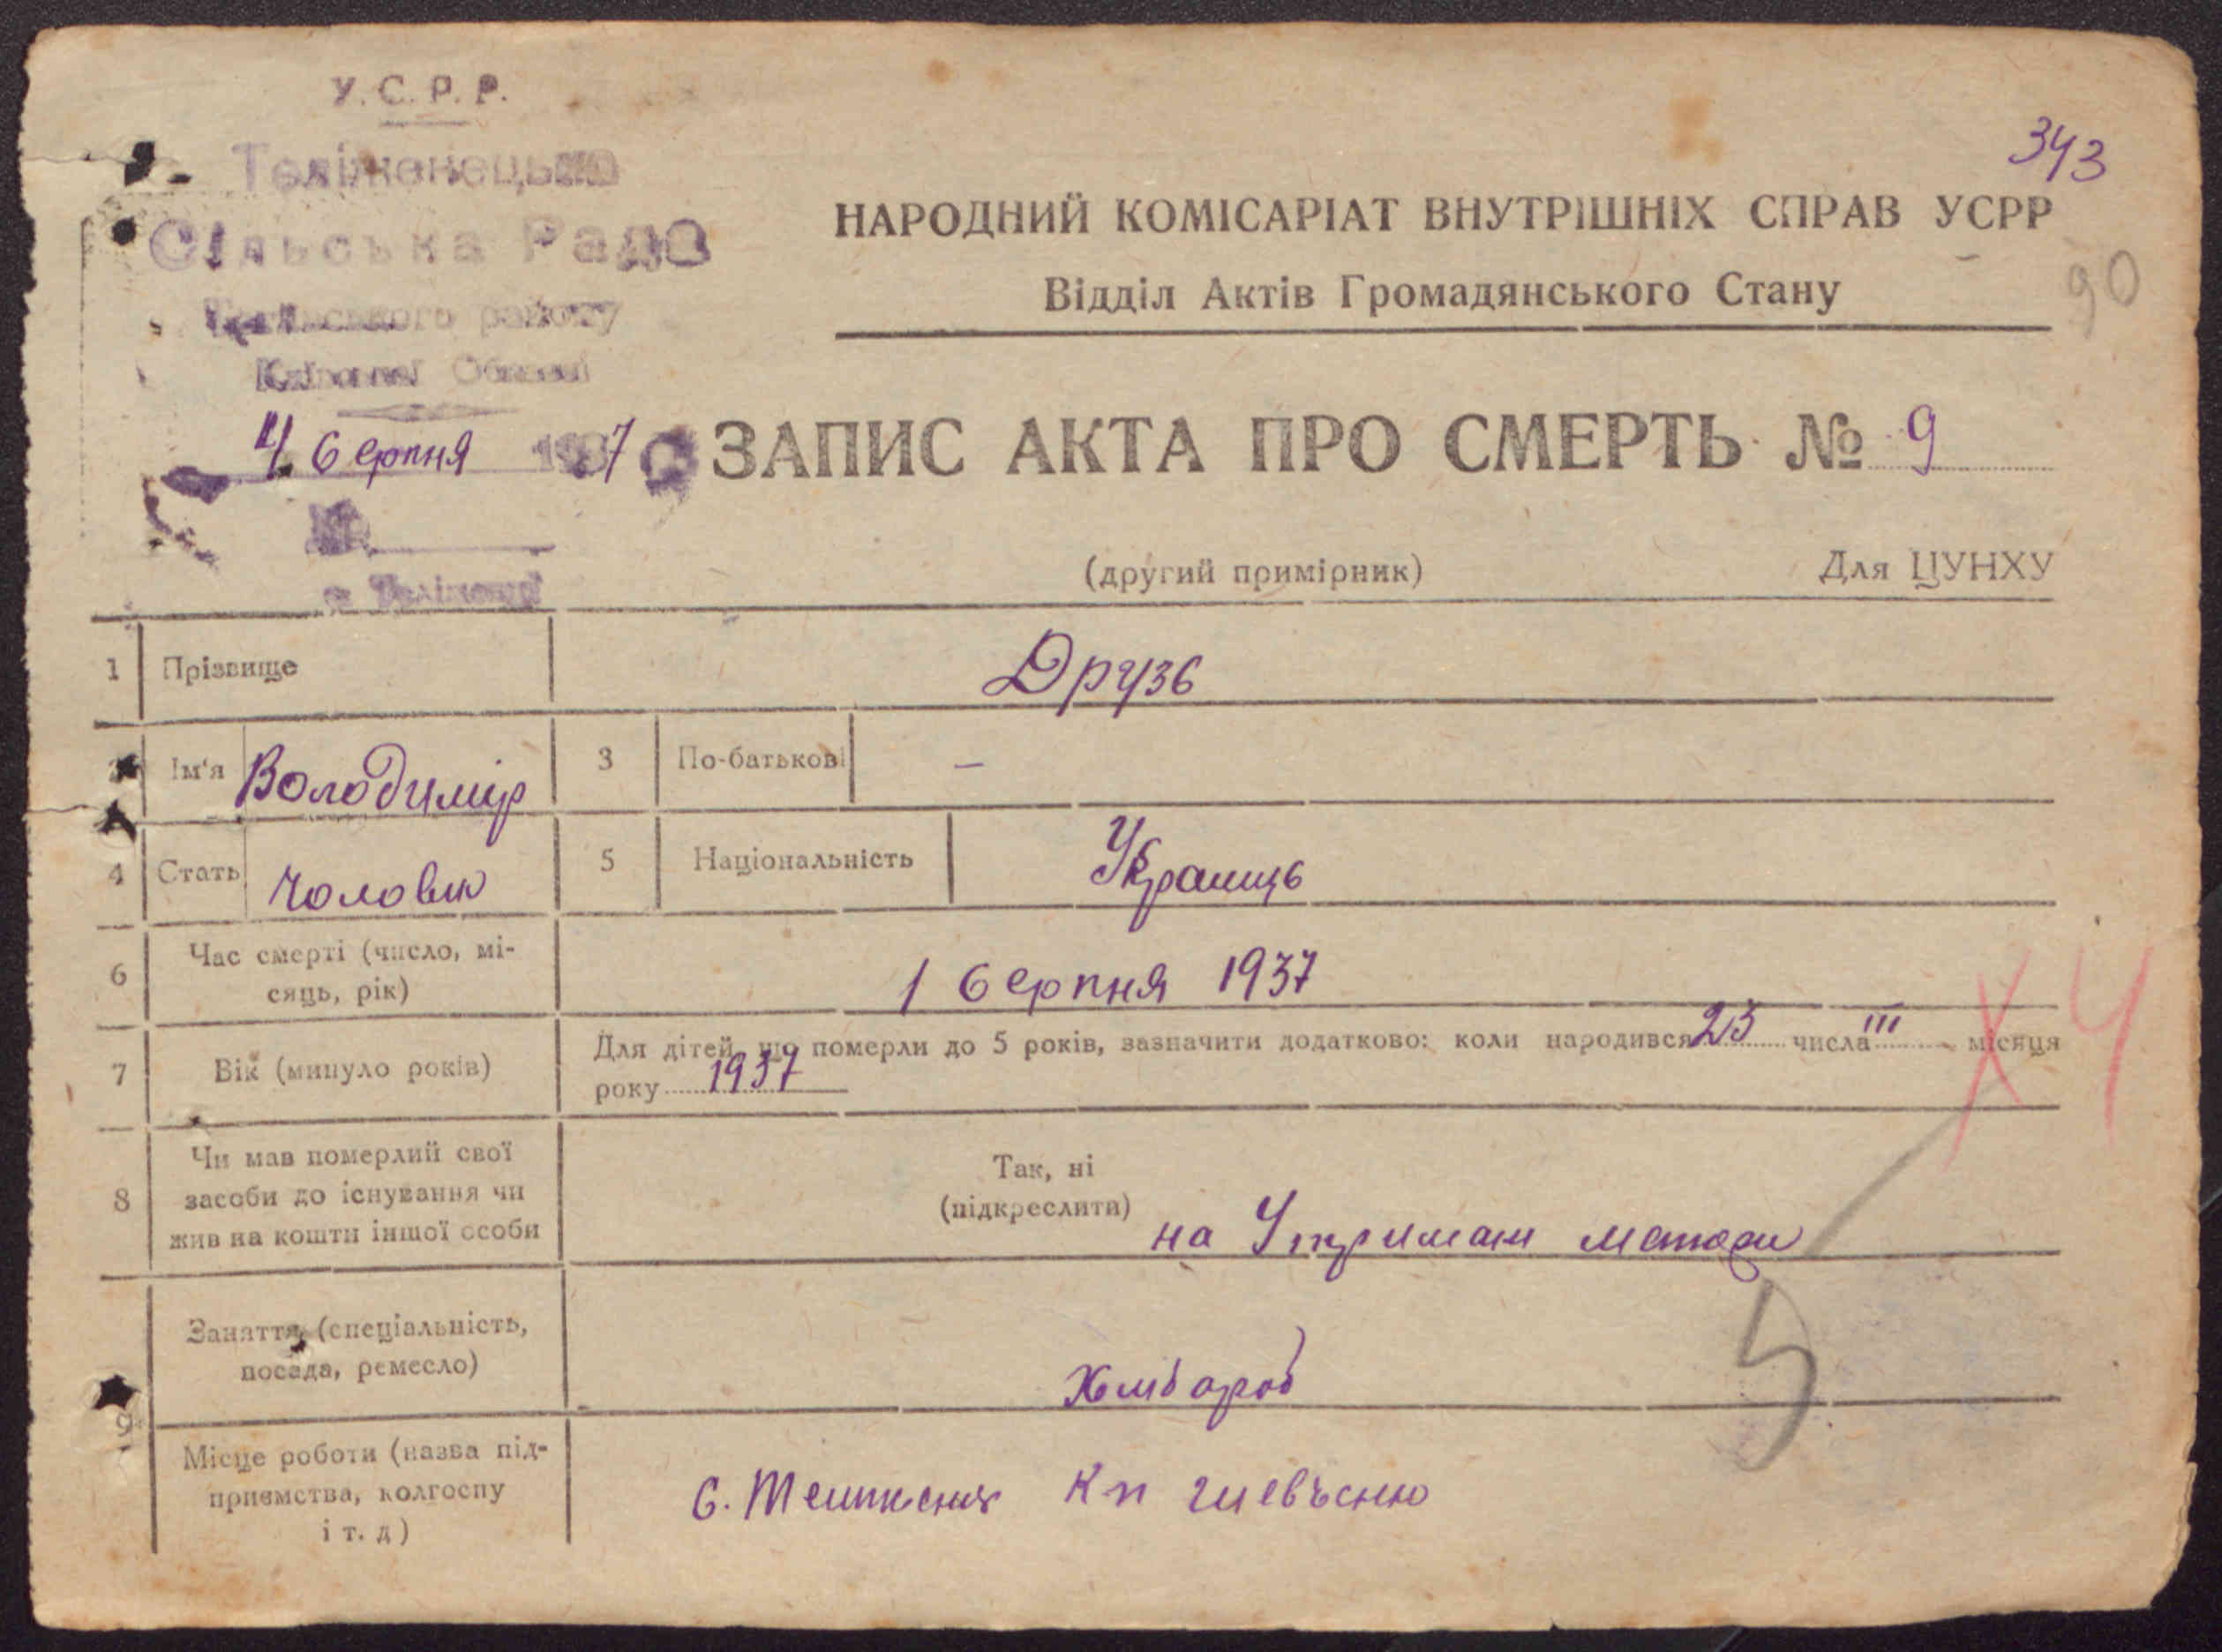 У.С.Р.Р.
Теліженецька
Сільська Рада
району
4 Серпня 1937
343
НАРОДНИЙ КОМІСАРІАТ ВНУТРІШНІХ СПРАВ УСРР
Відділ Актів Громадянського Стану
90
ЗАПИС АКТА ПРО СМЕРТЬ № 9
(другий примірник) Для ЦУНХУ
1 Прізвище Друзь
Ім'я Володимир 3 По-батькові —
4 Стать Чоловік 5 Національність Українць
6 Час смерті (число, мі-
сяць, рік) 1 Серпня 1937
7 Вік (минуло років) Для дітей, що померли до 5 років, зазначити додатково: коли народився 25 числа III місяця
року 1937
Х 4
8 Чи мав померлий свої
засоби до існування чи
жив на кошти іншої особи
Так, ні
(підкреслити) на матери
5
9 Заняття (спеціальність,
посада, ремесло) Хлібороб
Місце роботи (назва під-
приємства, колгоспу
і т. д)
с.